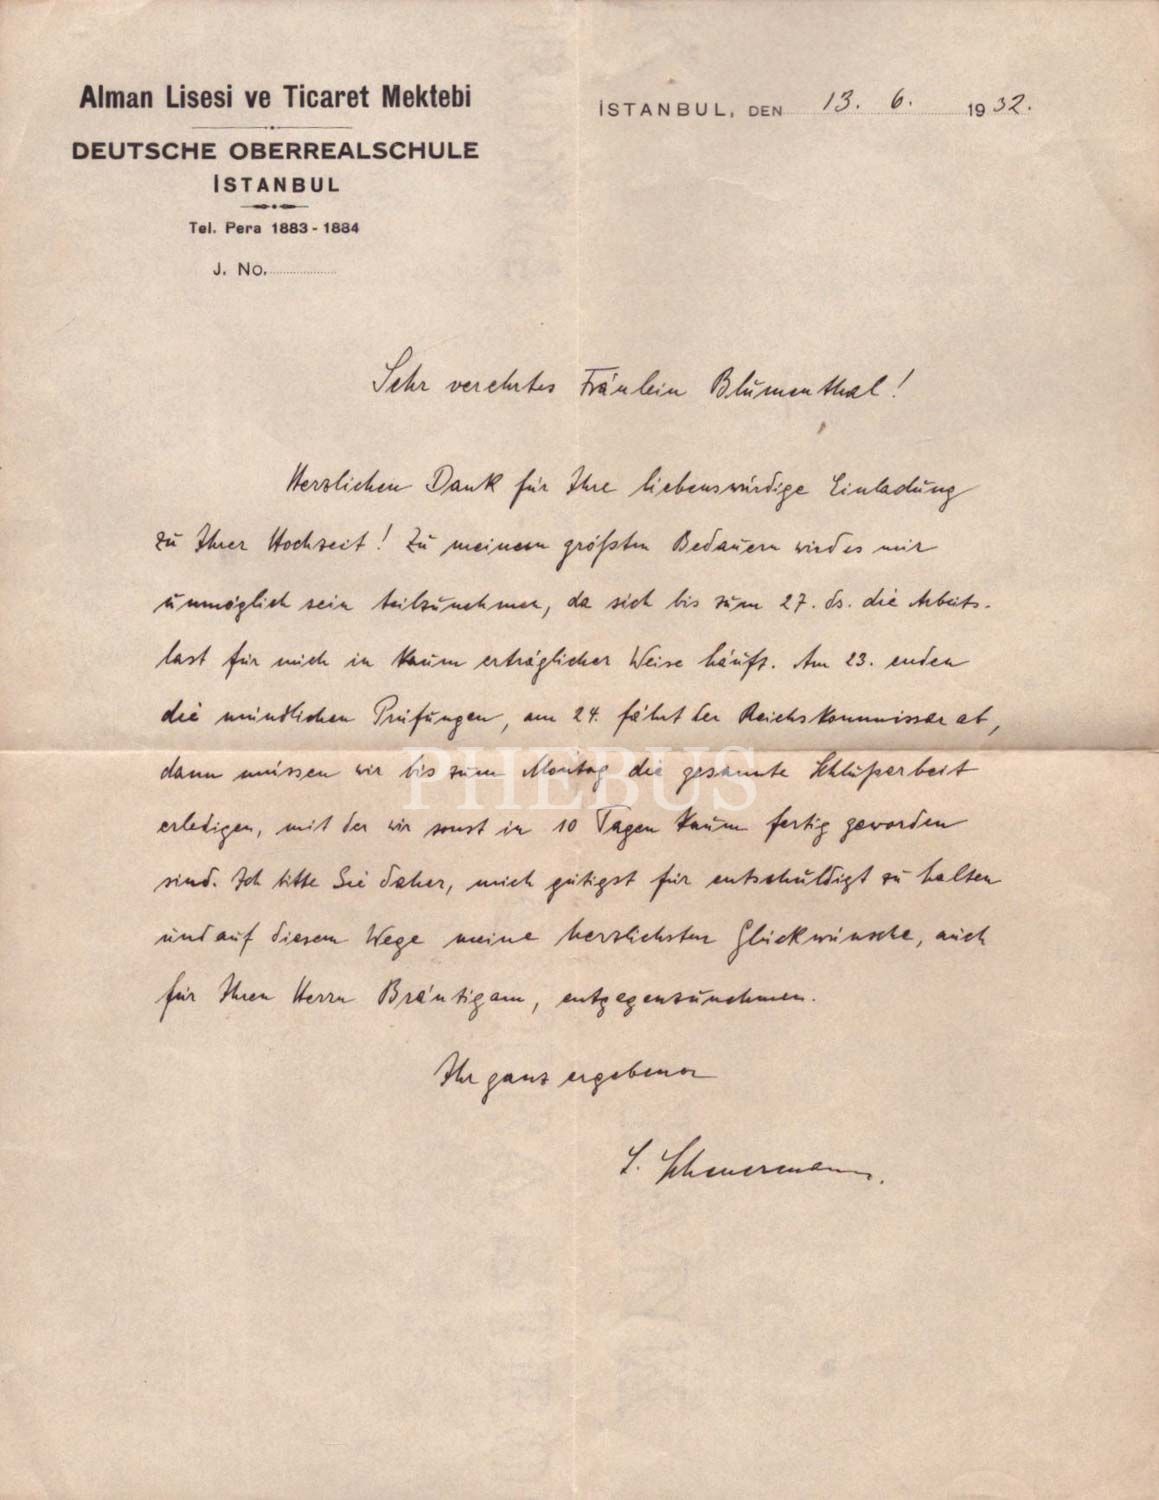 Alman Lisesi ve Ticaret Mektebi
DEUTSCHE OBERREALSCHULE
İSTANBUL
Tel. Pera 1883 - 1884
J. No.
İSTANBUL, DEN 13. 6. 1932.
Sehr verehrtes Fräulein Blumenthal!
Herzlichen Dank für Ihre liebenswürdige Einladung
zu Ihrer Hochzeit! Zu meinem größten Bedauern wird es mir
unmöglich sein teilzunehmen, da sich bis zum 27. ds. die Arbeits-
last für mich in kaum erträglicher Weise häuft. Am 23. enden
die mündlichen Prüfungen, am 24. fährt der Reichskommissar ab,
dann müssen wir bis zum Montag die gesamte Schlußarbeit
erledigen, mit der wir sonst in 10 Tagen kaum fertig geworden
sind. Ich bitte Sie daher, mich gütigst für entschuldigt zu halten
und auf diesem Wege meine herzlichsten Glückwünsche, auch
für Ihren Herrn Bräutigam, entgegenzunehmen.
Ihr ganz ergebener
Scheuermann.
PHEBUS